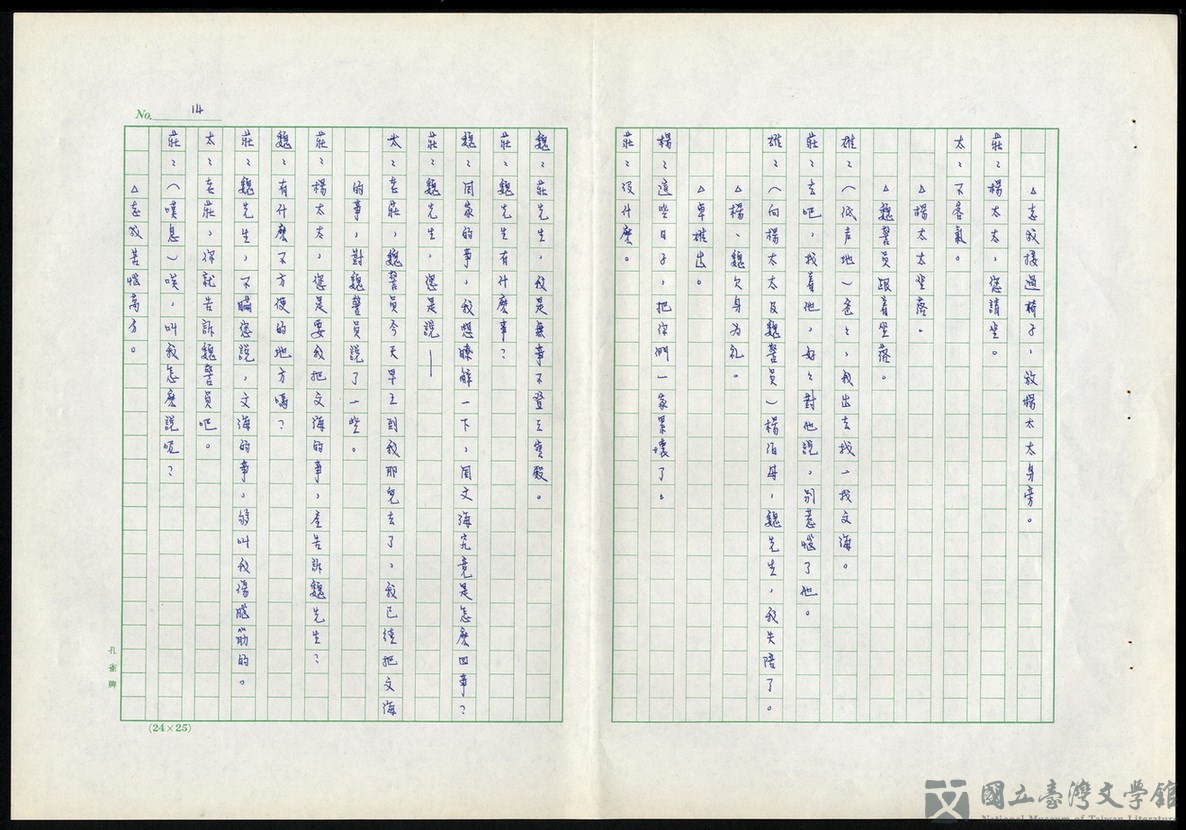 △志敏接過椅子，放楊太太身旁。
莊：楊太太，您請坐。
太：不客氣。
△楊太太坐落。
△魏警員跟着坐落。
雄：（低声地）爸々，我出去找一找文海。
莊：去吧，找着他，好々對他説，別惹惱了他。
雄：（向楊太太及魏警員）楊伯母，魏先生，我失陪了。
△楊、魏欠身为礼。
△卓雄出。
楊：這些日子，把你們一家累壞了。
莊：没什麼。
No. 14
魏：莊先生，我是無事不登三寶殿。
莊：魏先生有什麼事？
魏：周家的事，我想瞭解一下，周文海究竟是怎麼回事？
莊：魏先生，您是説——
太：老莊，魏警員今天早上到我那兒去了，我已經把文海
的事，對魏警員説了一些。
莊：楊太太，您是要我把文海的事，全告訴魏先生？
魏：有什麼不方便的地方嗎？
莊：魏先生，不瞞您説，文海的事，够叫我傷腦筋的。
太：老莊，你就告訴魏警員吧。
莊：（嘆息）唉，叫我怎麼説呢？
△志敏苦惱萬分。
孔雀牌
(24×25)
國立臺灣文學館
National Museum of Taiwan Literature